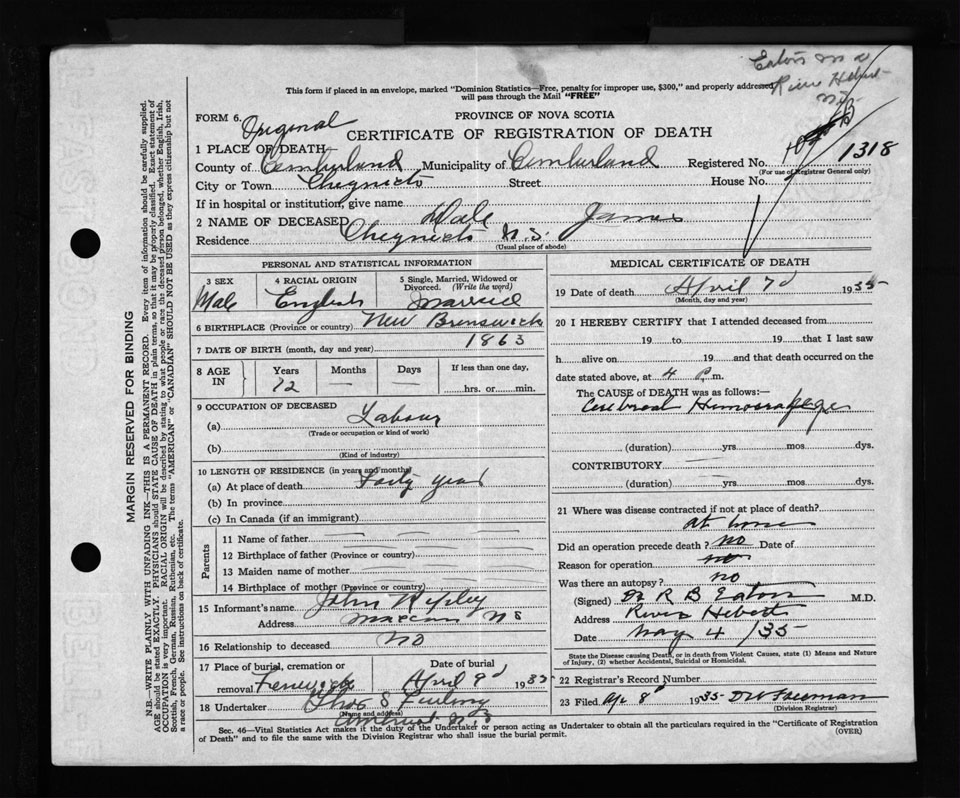 Eaton
River Hebert
N.S.
This form if placed in an envelope, marked "Dominion Statistics—Free, penalty for improper use, $300," and properly addressed,
will pass through the Mail "FREE"
FORM 6. Original
PROVINCE OF NOVA SCOTIA
CERTIFICATE OF REGISTRATION OF DEATH
1 PLACE OF DEATH
County of Cumberland Municipality of Cumberland Registered No. 1318
(For use of Registrar General only)
City or Town Chegnecto Street House No.
If in hospital or institution, give name
2 NAME OF DECEASED Wale James
Residence Chegnecto N.S.
(Usual place of abode)
PERSONAL AND STATISTICAL INFORMATION
3 SEX 4 RACIAL ORIGIN 5 Single, Married, Widowed or
Divorced. (Write the word)
Male English Married
6 BIRTHPLACE (Province or country) New Brunswick
7 DATE OF BIRTH (month, day and year) 1863
8 AGE IN Years Months Days If less than one day,
72 — — hrs. or min.
9 OCCUPATION OF DECEASED
(a) Labour
(Trade or occupation or kind of work)
(b)
(Kind of industry)
10 LENGTH OF RESIDENCE (in years and months)
(a) At place of death Forty year
(b) In province
(c) In Canada (if an immigrant)
Parents
11 Name of father
12 Birthplace of father (Province or country)
13 Maiden name of mother
14 Birthplace of mother (Province or country)
15 Informant's name John Ripley
Address Maccan N S
16 Relationship to deceased NO
17 Place of burial, cremation or Date of burial
removal Fenwick April 9d 1935
18 Undertaker Thos S
(Name and address)
Amherst N.S
MEDICAL CERTIFICATE OF DEATH
19 Date of death April 7d 1935
(Month, day and year)
20 I HEREBY CERTIFY that I attended deceased from
19 to 19 that I last saw
h alive on 19 and that death occurred on
date stated above, at 4 P. m.
The CAUSE of DEATH was as follows:
Cerebral Hemorrage
(duration) yrs mos dys.
CONTRIBUTORY
(duration) yrs mos dys.
21 Where was disease contracted if not at place of death?
at home
Did an operation precede death? no Date of
Reason for operation no
Was there an autopsy? no
(Signed) Dr R B Eaton M.D.
Address River Hebert
Date May 4 /35
State the Disease causing Death, or in death from Violent Causes, state (1) Means and Nature
of Injury, (2) whether Accidental, Suicidal or Homicidal.
22 Registrar's Record Number
23 Filed Ap 8d 1935 D W Freeman
(Division Registrar)
Sec. 46—Vital Statistics Act makes it the duty of the Undertaker or person acting as Undertaker to obtain all the particulars required in the "Certificate of Registration
of Death" and to file the same with the Division Registrar who shall issue the burial permit.
(OVER)
MARGIN RESERVED FOR BINDING
N.B.—WRITE PLAINLY WITH UNFADING INK—THIS IS A PERMANENT RECORD. Every item of information should be carefully supplied.
AGE should be stated EXACTLY. PHYSICIANS should STATE CAUSE OF DEATH in plain terms, so that it may be properly classified. Exact statement of
OCCUPATION is very important. RACIAL ORIGIN will be described by stating to what people or race the deceased person belonged, whether English, Irish,
Scottish, French, German, Russian, Ruthenian, etc. The terms "AMERICAN" or "CANADIAN" SHOULD NOT BE USED as they express citizenship but not
a race or people. See instructions on back of certificate.